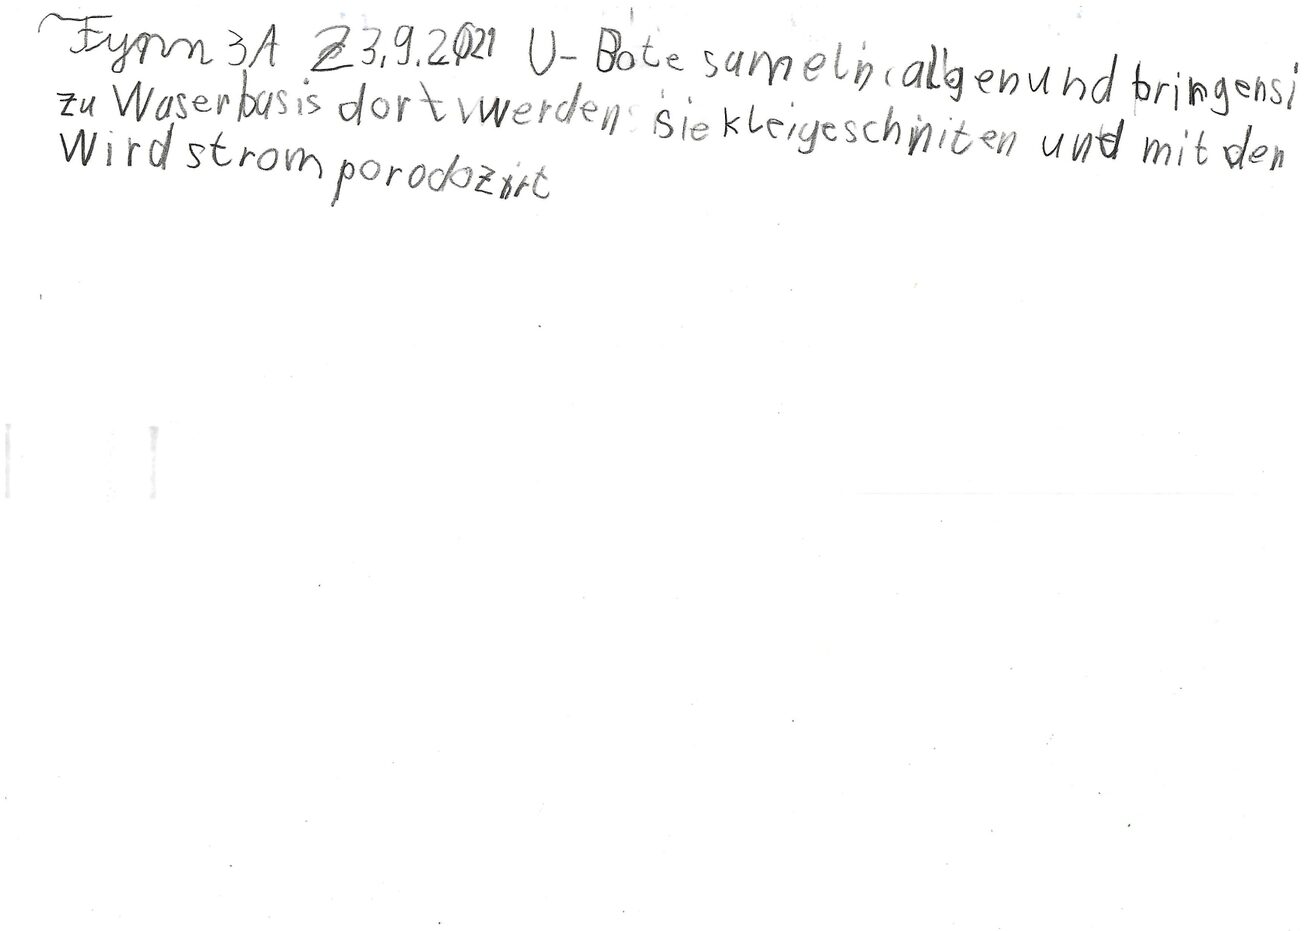 Fynn 3A 23.9.2021 U-Bote sameln algen und bringen si
zu Waserbasis dort werden sie kleigeschniten und mit den
Wird strom porodozirt